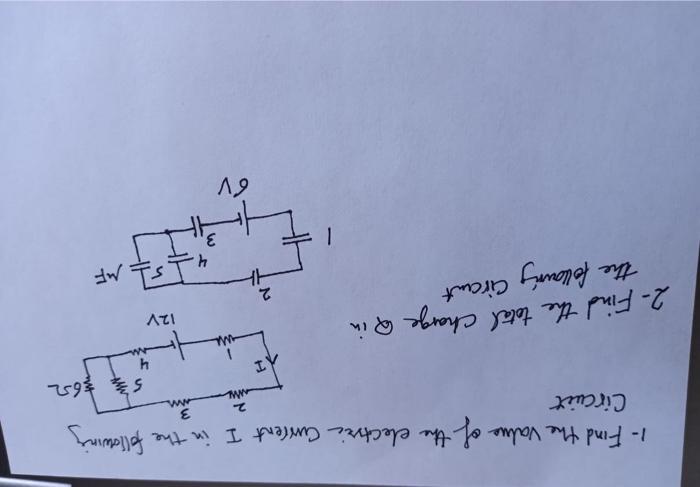 1- Find the value of the electric current I in the following
Circuit
2
3
I
5
6Ω
1
4
12V
2- Find the total charge Q in
the following Circuit
2
1
4
5
μF
3
6V